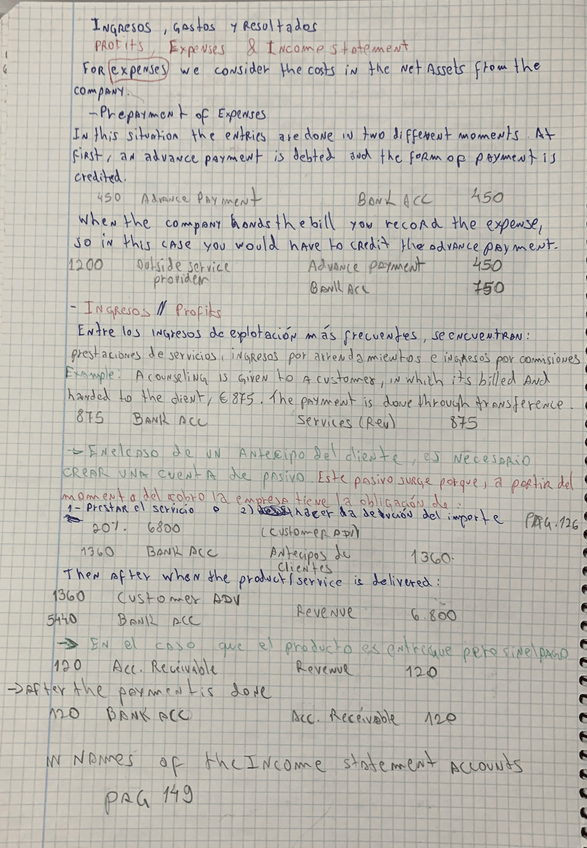 Ingresos, Gastos y Resultados
Profits, Expenses & Income statement
For expenses we consider the costs in the Net Assets from the
company.
- Prepayment of Expenses
In this situation the entries are done in two different moments. At
first, an advance payment is debted and the form of payment is
credited.
450 Advance Payment Bank Acc 450
When the company hands the bill you record the expense,
so in this case you would have to credit the advance payment.
1200 Outside service Advance payment 450
provider Bank Acc 750
- Ingresos // Profits
Entre los ingresos de explotación más frecuentes, se encuentran:
prestaciones de servicios, ingresos por arrendamientos e ingresos por comisiones
Example: A counseling is given to a customer, in which its billed and
handed to the client, €875. The payment is done through transference.
875 Bank Acc Services (Rev) 875
→ En el caso de un anticipo del cliente, es necesario
crear una cuenta de pasivo. Este pasivo surge porque, a partir del
momento del cobro la empresa tiene la obligación de:
1- Prestar el servicio o 2) hacer la devución del importe PAG. 126
20% 6800 (Customer ADV)
1360 Bank Acc Antecipos de 1360.
Clientes
Then after when the product/service is delivered:
1360 Customer ADV
Revenue 6.800
5440 Bank Acc
→ En el caso que el producto es entregue pero sin el pago
120 Acc. Receivable Revenue 120
→ After the payment is done
120 Bank Acc Acc. Receivable 120
Names of the Income statement accounts
PAG 149